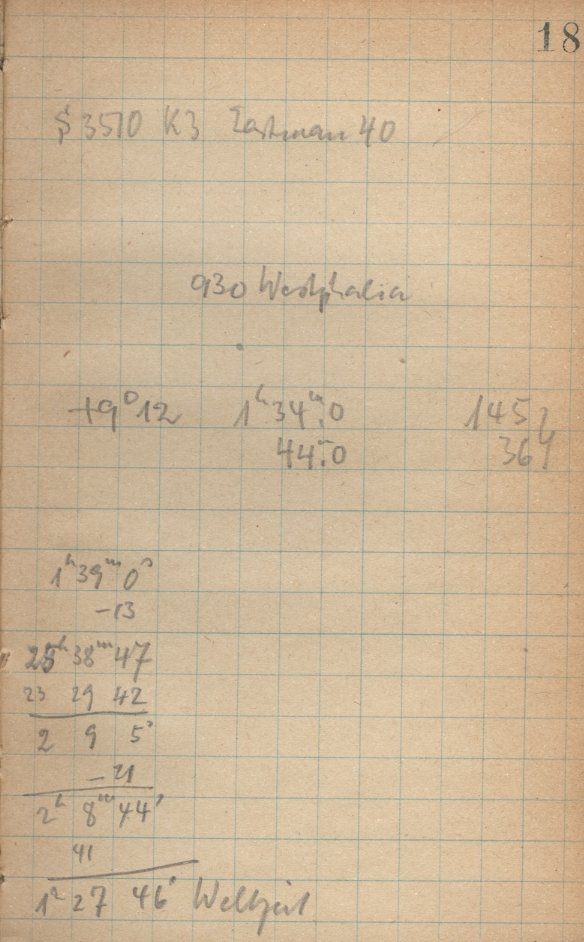 18
§ 3510 K3 Eastman 40
930 Westphalia
+9° 12 1ʰ34ᵐ.0 145
44ᵐ.0 36
1ʰ39ᵐ0ˢ
-13
25ʰ38ᵐ47
23 29 42
2 9 5ˢ
-21
2ʰ 8ᵐ44ˢ
41
1ʰ 27 46ˢ Weltzeit